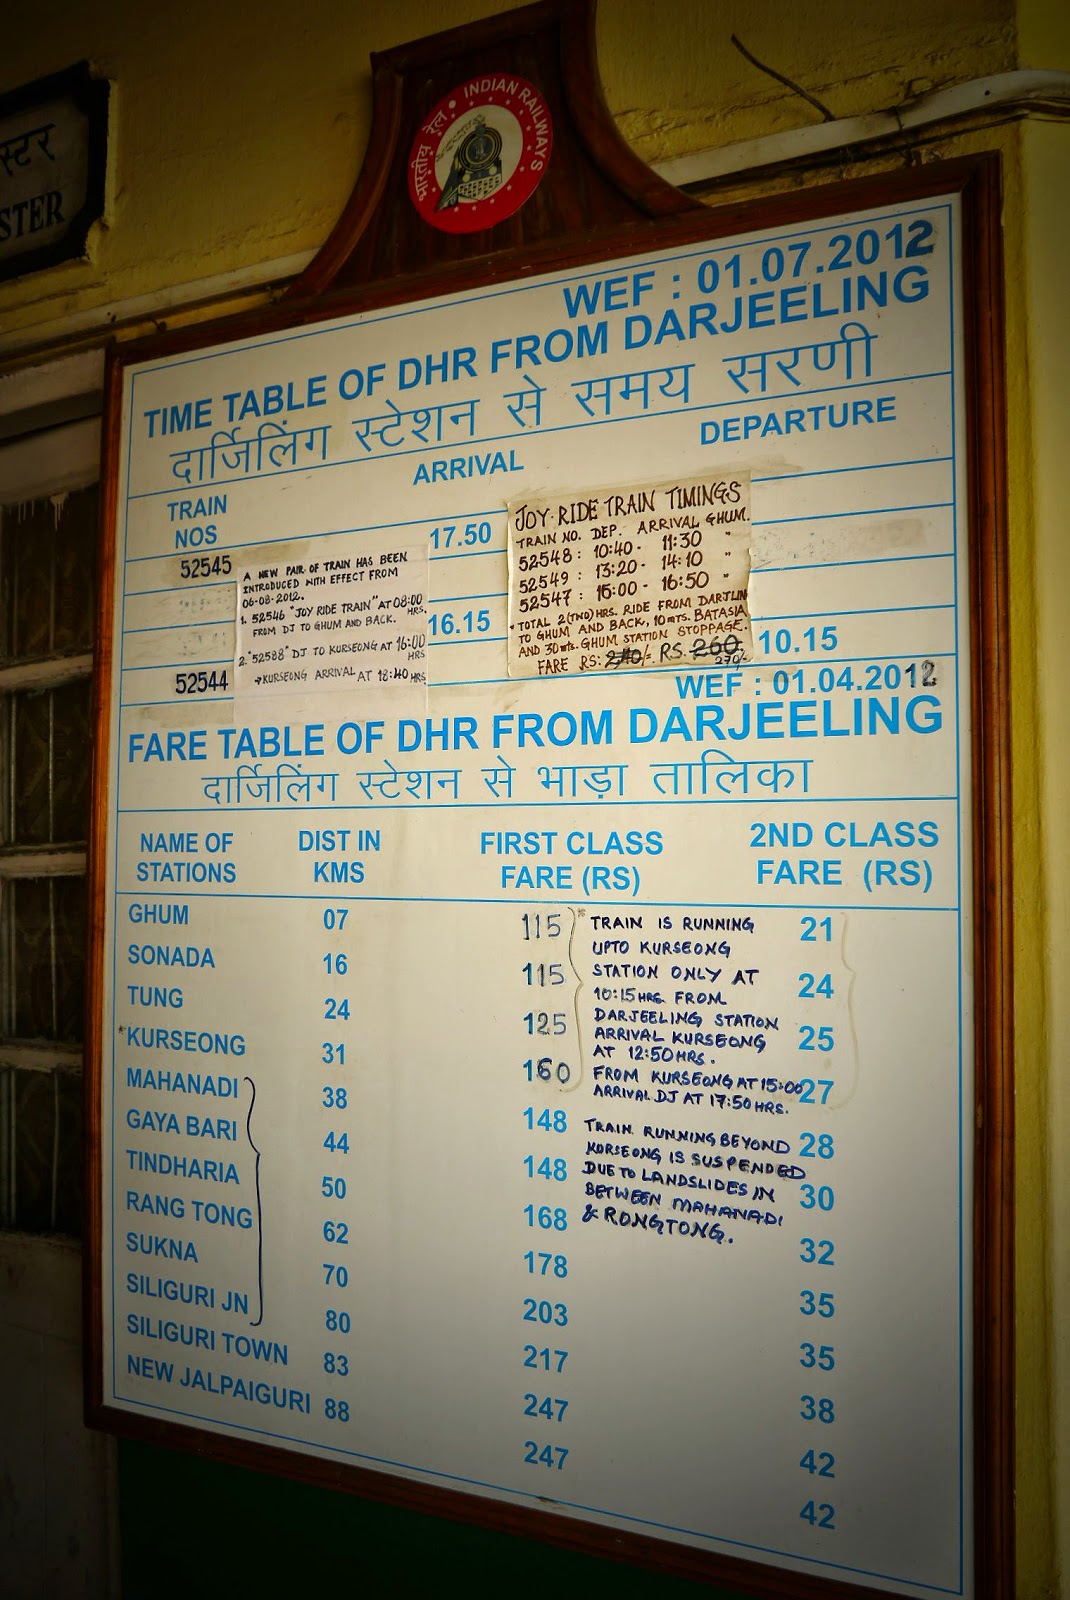 स्टर
STER
भारतीय रेल • INDIAN RAILWAYS
WEF : 01.07.2012
TIME TABLE OF DHR FROM DARJEELING
दार्जिलिंग स्टेशन से समय सरणी
TRAIN NOS ARRIVAL DEPARTURE
52545 17.50
16.15
52544 10.15
A NEW PAIR OF TRAIN HAS BEEN
INTRODUCED WITH EFFECT FROM
06-08-2012.
1. 52546 "JOY RIDE TRAIN" AT 08:00 HRS.
FROM DJ TO GHUM AND BACK.
2. "52588" DJ TO KURSEONG AT 16:00 HRS
→KURSEONG ARRIVAL AT 18:40 HRS
JOY RIDE TRAIN TIMINGS
TRAIN NO. DEP. ARRIVAL GHUM.
52548 : 10:40 - 11:30 "
52549 : 13:20 - 14:10 "
52547 : 16:00 - 16:50 "
* TOTAL 2(TWO) HRS. RIDE FROM DARJLIN
TO GHUM AND BACK, 10 mts. BATASIA
AND 30 mts. GHUM STATION STOPPAGE.
FARE RS: 240/- RS. 260 270/-
WEF : 01.04.2012
FARE TABLE OF DHR FROM DARJEELING
दार्जिलिंग स्टेशन से भाड़ा तालिका
NAME OF STATIONS DIST IN KMS FIRST CLASS FARE (RS) 2ND CLASS FARE (RS)
GHUM 07 115 21
SONADA 16 115 24
TUNG 24 125 25
*KURSEONG 31 160 27
MAHANADI 38 148 28
GAYA BARI 44 148 30
TINDHARIA 50 168 32
RANG TONG 62 178 35
SUKNA 70 203 35
SILIGURI JN 80 217 38
SILIGURI TOWN 83 247 42
NEW JALPAIGURI 88 247 42
* TRAIN IS RUNNING
UPTO KURSEONG
STATION ONLY AT
10:15 HRS. FROM
DARJEELING STATION
ARRIVAL KURSEONG
AT 12:50 HRS.
FROM KURSEONG AT 15:00
ARRIVAL DJ AT 17:50 HRS.
TRAIN RUNNING BEYOND
KURSEONG IS SUSPENDED
DUE TO LANDSLIDES IN
BETWEEN MAHANADI
& RONGTONG.